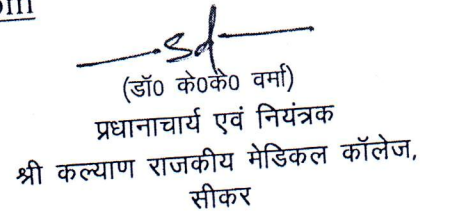 sd
(डॉ0 के0के0 वर्मा)
प्रधानाचार्य एवं नियंत्रक
श्री कल्याण राजकीय मेडिकल कॉलेज,
सीकर